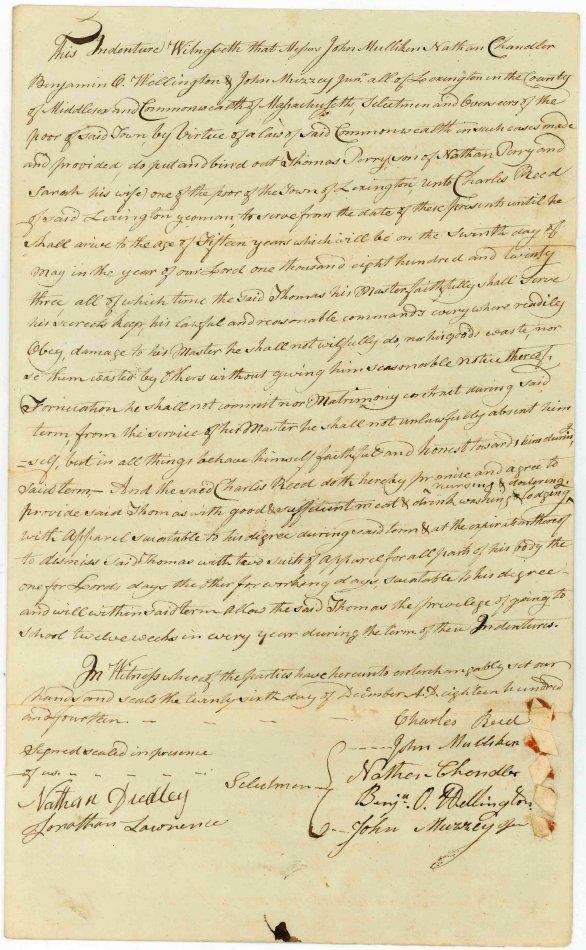 This Indenture Witnesseth that Messrs John Mulliken Nathan Chandler
Benjamin O. Wellington & John Muzzey Junr all of Lexington in the County
of Middlesex and Commonwealth of Massachusetts, Selectmen and Overseers of the
poor of said Town, by virtue of a law of said Commonwealth in such cases made
and provided, do put and bind out Thomas Perry son of Nathan Perry and
Sarah his wife) one of the poor of the Town of Lexington unto Charles Reed
of said Lexington yeoman to serve from the date of these presents until he
shall arive to the age of Fifteen years which will be on the day of
may in the year of our Lord one thousand eight hundred and twenty
three, all of which time the said Thomas his Master faithfully shall serve
his secrets keep, his lawful and reasonable commands everywhere readily
Obey, damage to his Master he shall not wilfully do, nor his goods waste, nor
se them wasted by Others without giving him seasonable notice thereof,
Fornication he shall not commit nor Matrimony contract during said
term from the service of his Master he shall not unlawfully absent him
=self, but in all things behave himself faithful and honest towards him during
said term,— And he said Charles Reed doth hereby promise and agree to
provide said Thomas with good & sufficient meat & drink washing & lodging nursing &
with Apparel suiatable to his degree during said term & at the expiration thereof
to dismiss said Thomas with two suits of apparel for all parts of his body the
one for Lords days the other for working days suiatable to his degree
and will within said term allow the said Thomas the privilege of going to
school twelve weeks in every year during the term of these Indentures.
In Witness whereof the parties have hereunto enterchangably set our
hands and seals the twenty sixth day of December A.D. eighteen hundred
and fourteen.
Charles Reed
Signed sealed in presence
of us
John Mulliken
Selectmen
Nathan Chandler
Nathan Dudley
Benjn. O. Wellington
Jonathan Lawrence
John Muzzey Jun